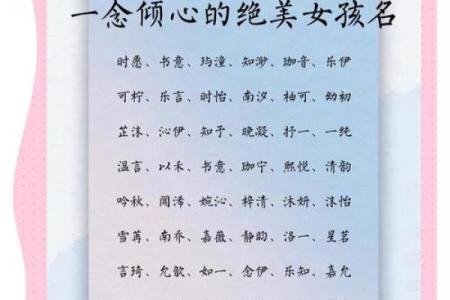 一念倾心的绝美女孩名
时愿、书意、玙潼、知渺、珈音、乐伊
可柠、乐言、时怡、南汐、柚可、幼初
芷沫、沁伊、知予、晚凝、抒一、一纯
温言、以禾、书意、珈宁、熙悦、清韵
吟秋、闻浠、婉沁、梓清、沐妍、沫怡
雪苒、南乔、嘉薇、静昀、洛一、星茗
言琦、允歆、如一、念伊、乐知、嘉允